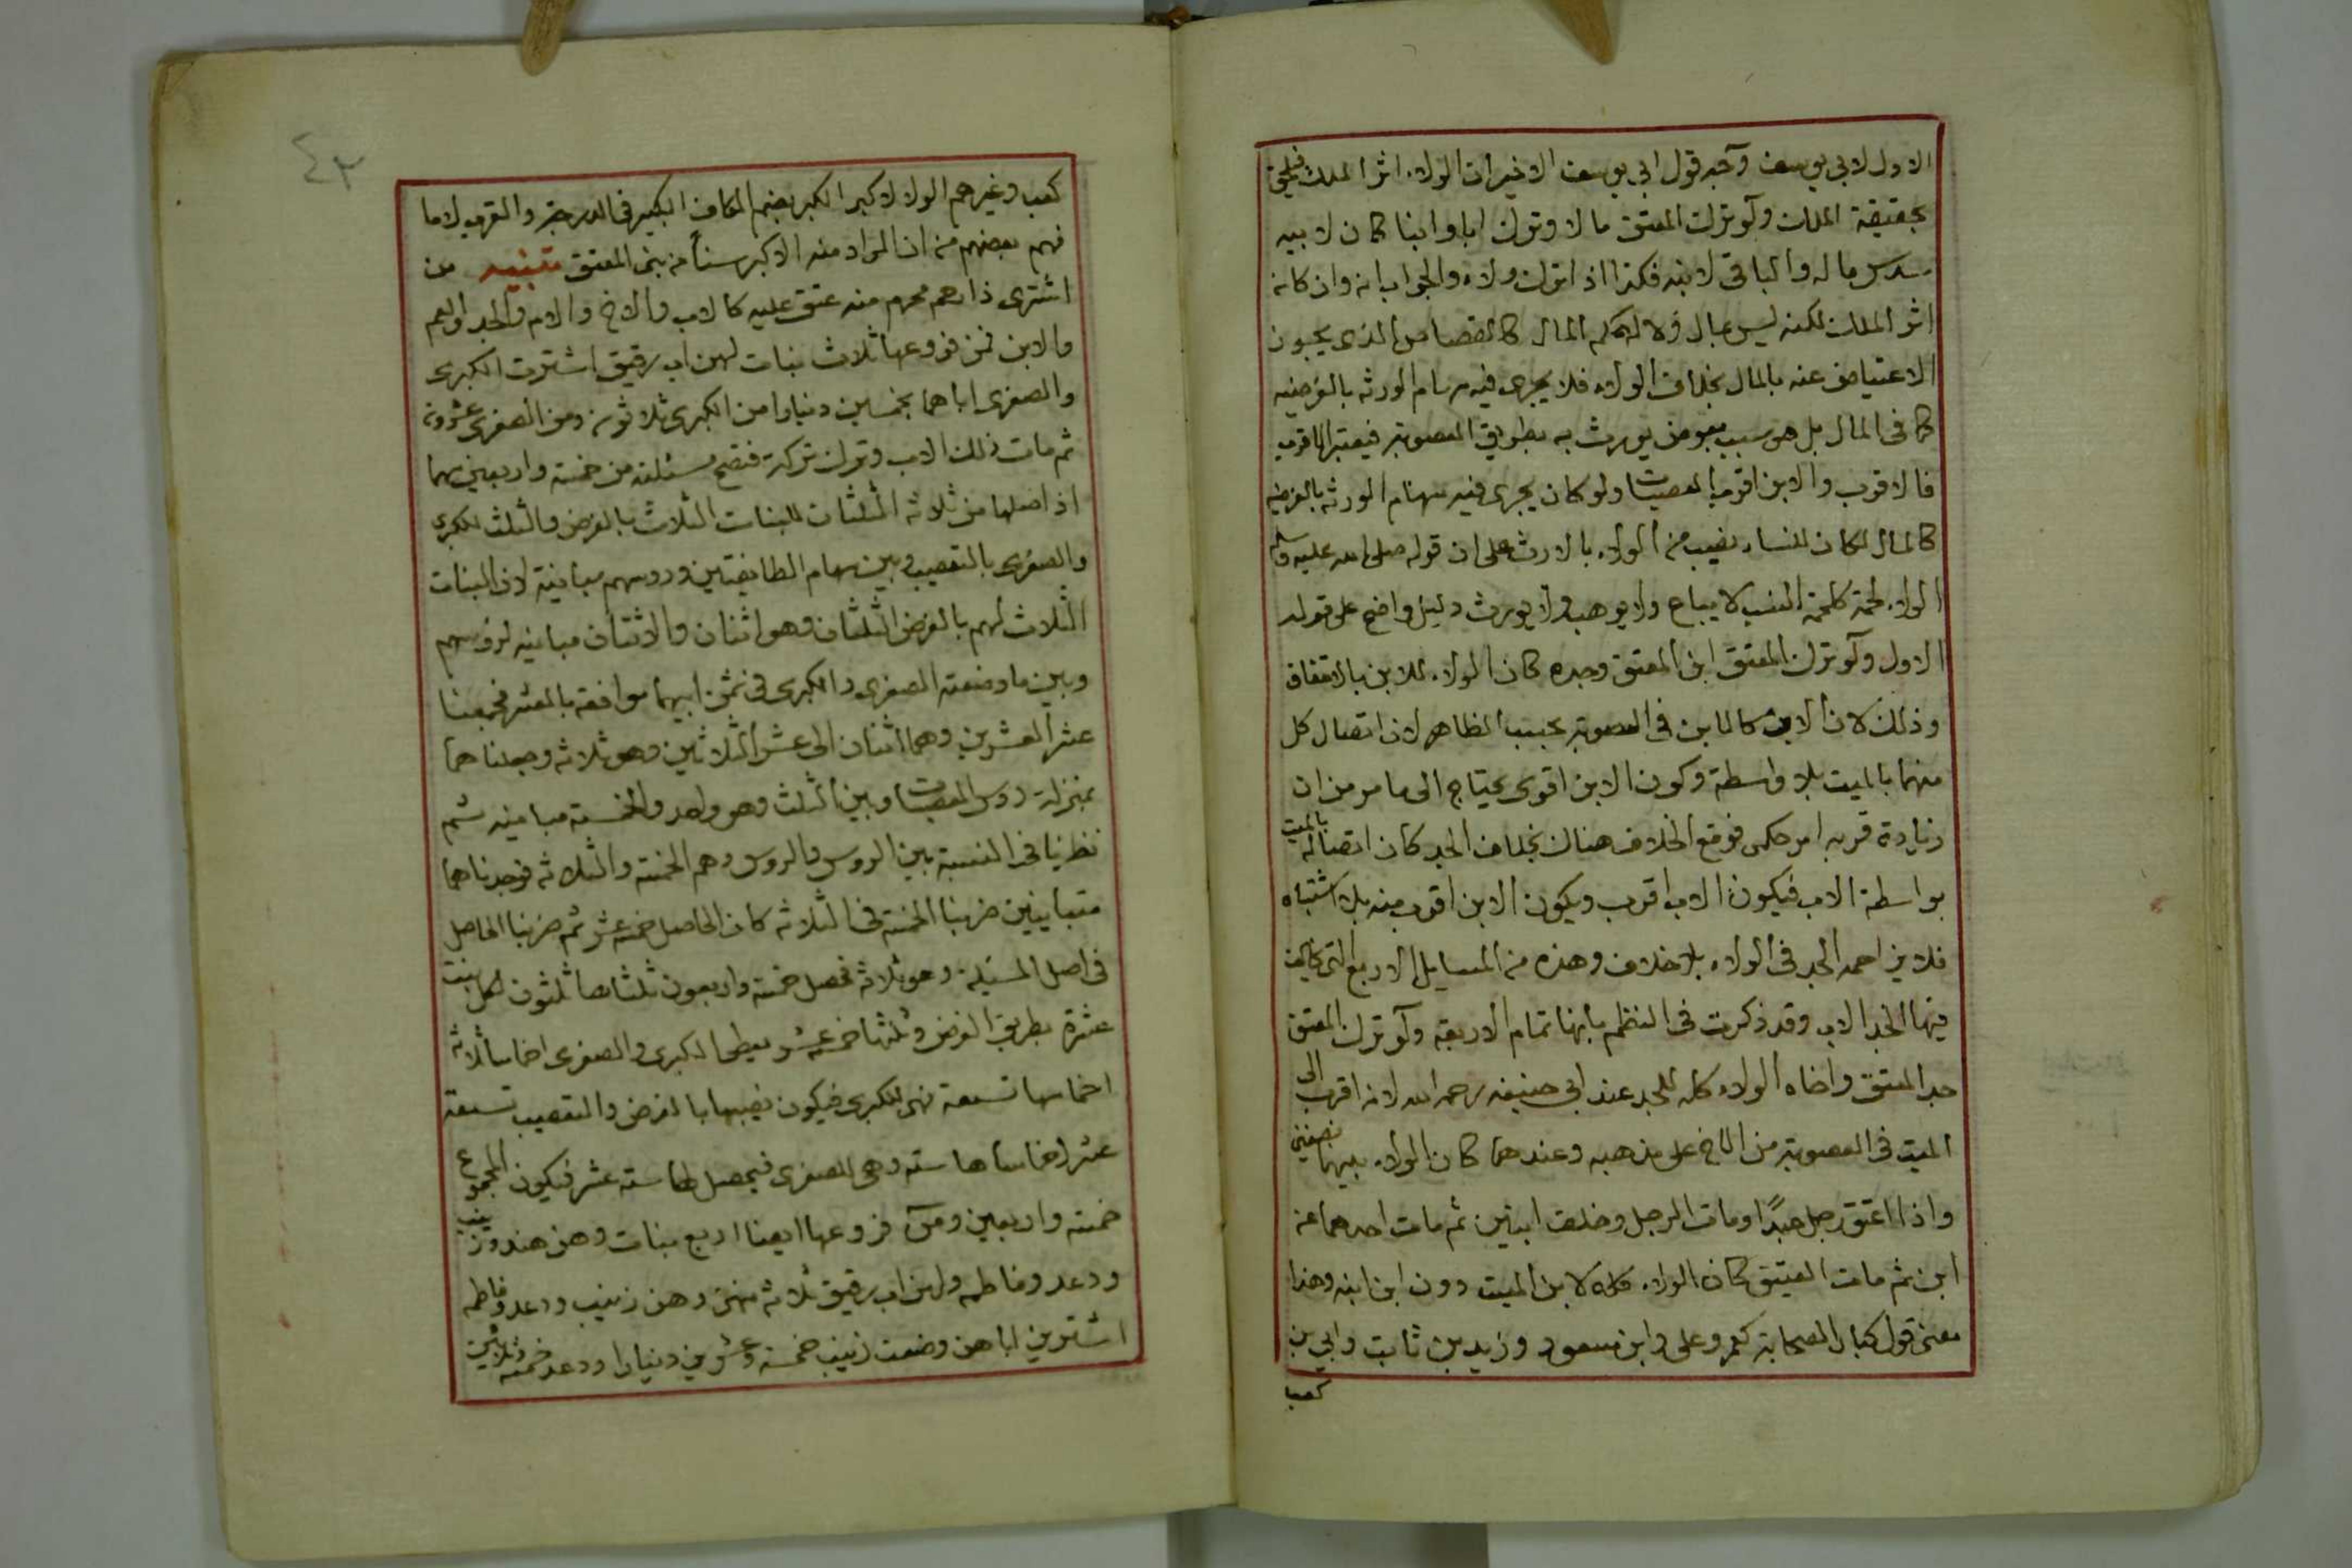 الاول لابي يوسف وآجه قول ابي يوسف الاخير ان الولاء اثر الملك فيلحق
بحقيقة الملك ولو ترك المعتق مالا وترك ابا وابنا كان لابيه
سدس ماله والباقي لابنه فكذا اذا ترك ولاء والجواب انه وان كان
اثر الملك لكنه ليس بمال ولا له حكم المال كالقصاص الذي يجوز
الاعتياض عنه بالمال بخلاف الولاء فلا يجرى فيه سهام الورثه بالفرضيه
كما في المال بل هو سبب يورث به بطريق العصوبة فيعتبر الاقرب
فالاقرب والابن اقرب العصبات ولو كان يجرى فيه سهام الورثه بالفرضيه
كالمال لكان للنساء نصيب من الولاء بالارث على ان قوله صلى الله عليه وسلم
الولاء لحمة كلحمة النسب لا يباع ولا يوهب ولا يورث دليل واضح على قوله
الاول ولو ترك المعتق ابن المعتق وجده كان الولاء للابن بالاتفاق
وذلك لان الاب كالابن في العصوبة بحسب الظاهر لان اتصال كل
منهما بالميت بلا واسطة وكون الابن اقوى يحتاج الى ما مر من ان
زيادة قربه امر حكمى فوقع الخلاف هناك بخلاف الجد كان اتصاله بالميت
بواسطة الاب فيكون الاب اقرب ويكون الابن اقرب منه بلا اشتباه
فلا يزاحمه الجد في الولاء بلا خلاف وهذه من المسايل الاربع التي خالف
فيها الجد الاب وقد ذكرت في النظم بانها تمام الاربعة ولو ترك المعتق
جد المعتق واخاه الولاء كله للجد عند ابي حنيفه رحمه الله لانه اقرب الى
الميت في العصوبة من الاخ على مذهبه وعندهما كان الولاء بينهما نصفين
واذا اعتق رجل عبدًا ومات الرجل وخلف ابنين ثم مات احدهما عن
ابن ثم مات العتيق كان الولاء كله لابن الميت دون ابن ابنه وهذا
معنى قول كبار الصحابة كعمر وعلى وابن مسعود وزيد بن ثابت وابي بن
كعب
٤٢
كعب وغيرهم الولا لا كبر الكبر بضم الكاف الكبير في الدرجة والقرب لا ما
فهم بعضهم من ان المراد منه الاكبر سناً من بنى المعتق تنبيه من
اشترى ذا رحم محرم منه عتق عليه كالاب والاخ والام والجد والعم
والابن فمن فروعها ثلاث بنات لهن اب رقيق اشترت الكبرى
والصغرى اباهما بخمسين دينارا من الكبرى ثلاثون ومن الصغرى عشرون
ثم مات ذلك الاب وترك تركة فتصح مسئلته من خمسة واربعين سهما
اذ اصلها من ثلاثه الثلثان للبنات الثلاث بالفرض والثلث للكبرى
والصغرى بالتعصيب وبين سهام الطايفتين وروسهم مباينة لان البنات
الثلاث لهم بالفرض الثلثان وهو اثنان والاثنان مباينه لروسهم
وبين ما وضعته الصغرى والكبرى في ثمن ابيهما موافقه بالعشر فجمعنا
عشر العشرين وهما اثنان الى عشر الثلاثين وهو ثلاثه وجعلناهما
بمنزلة روس العصبات وبين الثلث وهو واحد والخمسة مباينه ثم
نظرنا في النسبة بين الروس والروس وهم الخمسة والثلاثه فوجدناهما
متباينين ضربنا الخمسه في الثلاثه كان الحاصل خمسه عشر ثم ضربنا الحاصل
في اصل المسئلة وهو ثلاثه تحصل خمسة واربعون ثلثاها ثلثون لكل بنت
عشرة بطريق الفرض وثلثها خمسة عشر يعطى الكبرى والصغرى اخماسا ثلاثه
اخماسها تسعة فهى للكبرى فيكون نصيبها بالفرض والتعصيب تسعة
عشر وخمساها سته وهى للصغرى فيحصل لها سته عشر فيكون المجموع
خمسة واربعين ومن فروعها ايضا اربع بنات وهن هند وزينب
ودعد وفاطمه ولهن اب رقيق ثلاثه منهن وهن زينب ودعد وفاطمه
اشترين اباهن وضعت زينب خمسة وعشرين دينارا ودعد خمسة وثلاثين